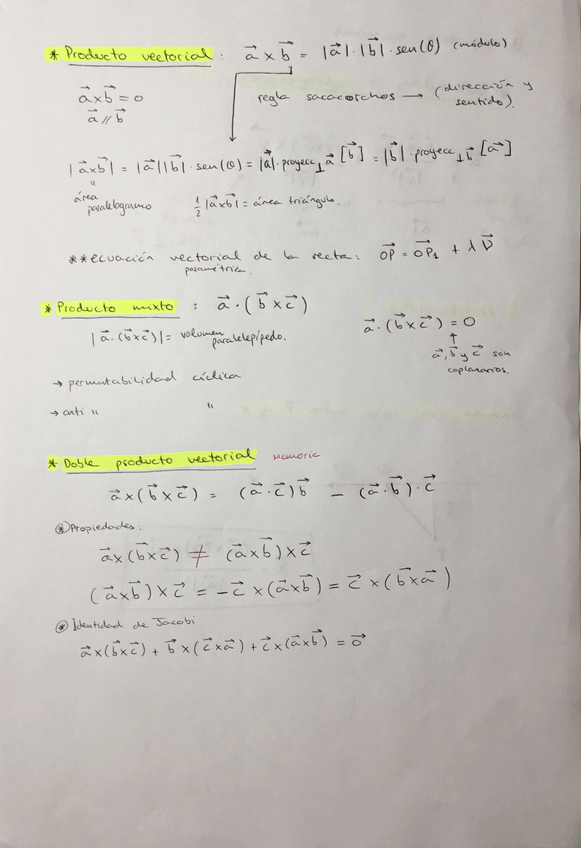 * Producto vectorial : a⃗ x b⃗ = |a⃗| · |b⃗| · sen(θ) (módulo)
a⃗ x b⃗ = 0
a⃗ // b⃗
regla sacacorchos → (dirección y sentido).
|a⃗ x b⃗| = |a⃗||b⃗| · sen(θ) = |a⃗| · proyecc⊥a⃗ [b⃗] = |b⃗| · proyecc⊥b⃗ [a⃗]
"
área paralelogramo
½ |a⃗ x b⃗| = área triángulo.
** ecuación vectorial de la recta: OP⃗ = OP₁⃗ + λ V⃗
paramétrica
* Producto mixto : a⃗ · (b⃗ x c⃗)
|a⃗ · (b⃗ x c⃗)| = volumen paralelepípedo.
a⃗ · (b⃗ x c⃗) = 0
↑
a⃗, b⃗ y c⃗ son
coplanarios.
→ permutabilidad cíclica
→ anti " "
* Doble producto vectorial memoria
a⃗ x (b⃗ x c⃗) = (a⃗ · c⃗) b⃗ − (a⃗ · b⃗) · c⃗
⊛ Propiedades.
a⃗ x (b⃗ x c⃗) ≠ (a⃗ x b⃗) x c⃗
(a⃗ x b⃗) x c⃗ = − c⃗ x (a⃗ x b⃗) = c⃗ x (b⃗ x a⃗)
⊛ Identidad de Jacobi
a⃗ x (b⃗ x c⃗) + b⃗ x (c⃗ x a⃗) + c⃗ x (a⃗ x b⃗) = 0⃗